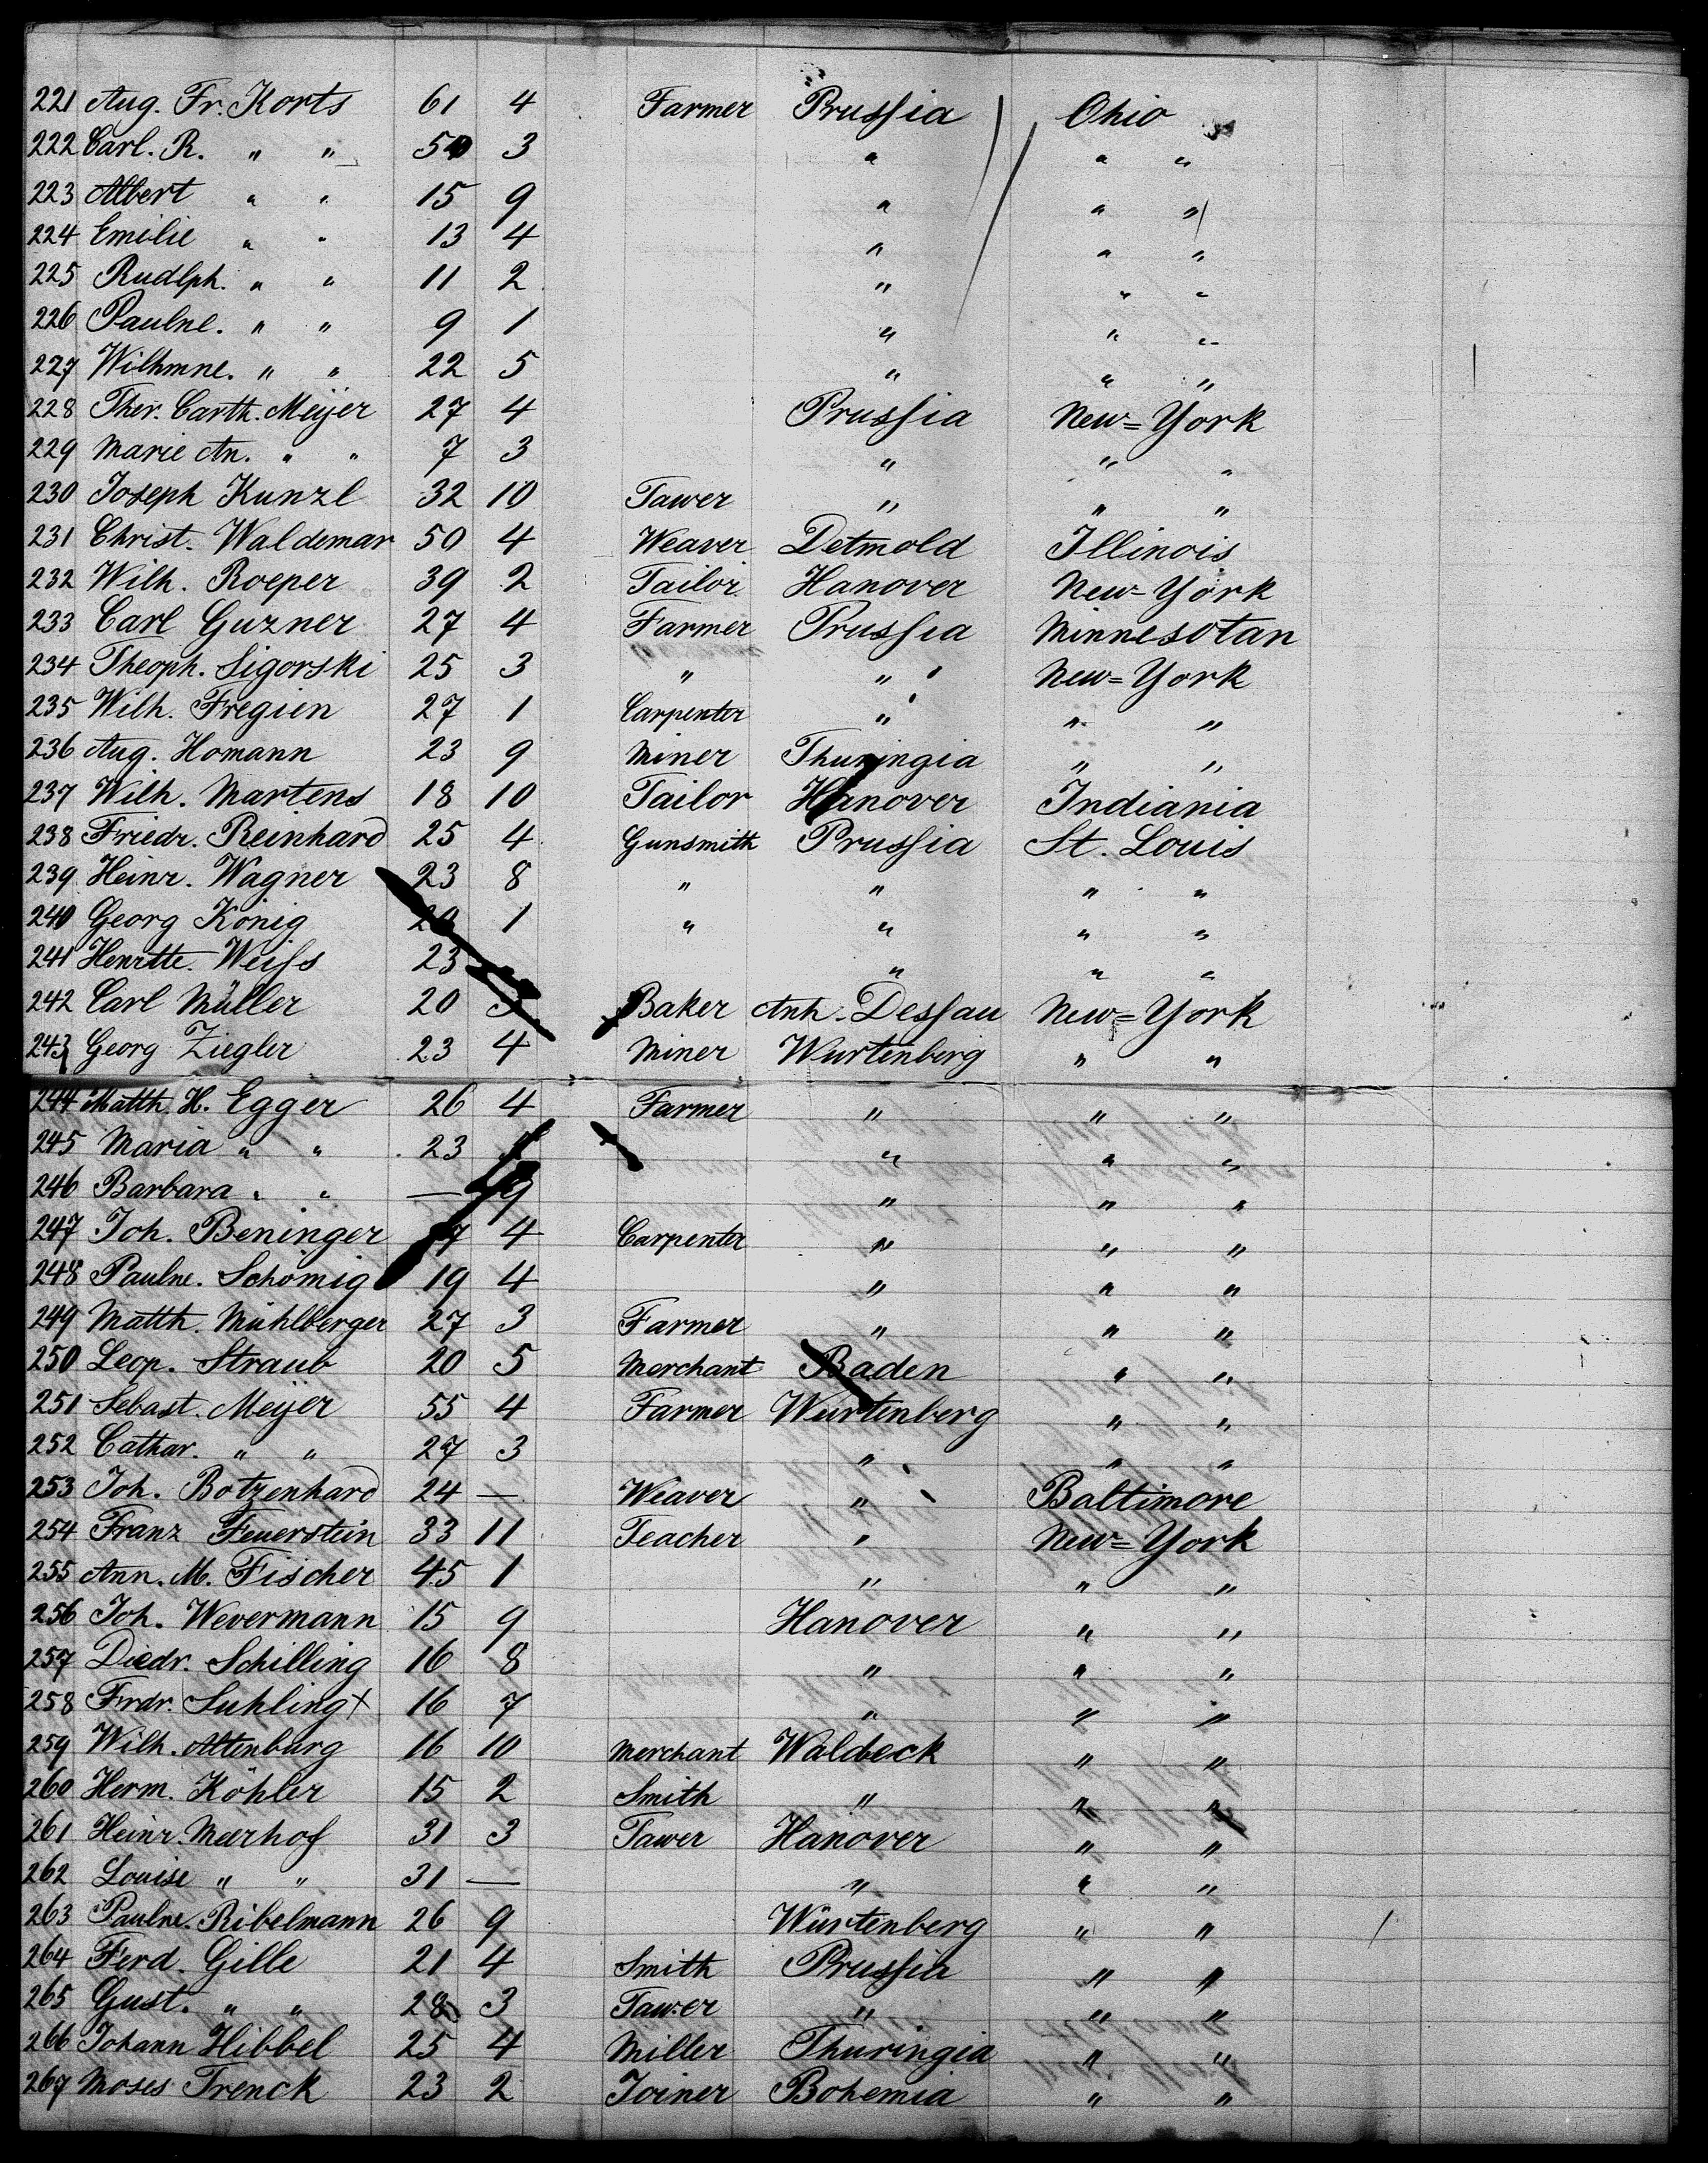 221 Aug. Fr. Korts 61 4 Farmer Prussia Ohio
222 Carl. R. " " 50 3 " " "
223 Albert " " 15 9 " " "
224 Emilie " " 13 4 " " "
225 Rudlph. " " 11 2 " " "
226 Paulne. " " 9 1 " " "
227 Wilhmne. " " 22 5 " " "
228 Ther. Carth. Meijer 27 4 Prussia New=York
229 Marie An. " " 7 3 " " "
230 Joseph Kunzl 32 10 Tawer " " "
231 Christ. Waldemar 50 4 Weaver Detmold Illinois
232 Wilh. Roeper 39 2 Tailor Hanover New-York
233 Carl Guzner 27 4 Farmer Prussia Minnesotan
234 Theoph. Sigorski 25 3 " " New=York
235 Wilh. Fregien 27 1 Carpenter " " "
236 Aug. Homann 23 9 Miner Thuringia " "
237 Wilh. Martens 18 10 Tailor Hanover Indiania
238 Friedr. Reinhard 25 4 Gunsmith Prussia St. Louis
239 Heinr. Wagner 23 8 " " " "
240 Georg König 1 " " " "
241 Henrtte. Weiss 23 " " "
242 Carl Müller 20 3 Baker Anh. Dessau New=York
243 Georg Ziegler 23 4 Miner Wurtenberg " "
244 Matth. H. Egger 26 4 Farmer " " "
245 Maria " " 23 " " "
246 Barbara " " — 9 " " "
247 Joh. Beninger 4 Carpenter " " "
248 Paulne. Schömig 19 4 " " "
249 Matth. Mühlberger 27 3 Farmer " " "
250 Leop. Straub 20 5 Merchant Baden " "
251 Sebast. Meijer 55 4 Farmer Wurtenberg " "
252 Cathar. " " 27 3 " " "
253 Joh. Botzenhard 24 — Weaver " Baltimore
254 Franz Feuerstein 33 11 Teacher " New=York
255 Ann. M. Fischer 45 1 " " "
256 Joh. Wevermann 15 9 Hanover " "
257 Diedr. Schilling 16 8 " " "
258 Frdr. Suhling x 16 7 " " "
259 Wilh. Altenburg 16 10 Merchant Waldeck " "
260 Herm. Köhler 15 2 Smith " " "
261 Heinr. Meerhof 31 3 Tawer Hanover " "
262 Louise " " 31 — " " "
263 Paulne. Ribelmann 26 9 Würtenberg " "
264 Ferd. Gille 21 4 Smith Prussia " "
265 Gust. " " 28 3 Tawer " " "
266 Johann Hibbel 25 4 Miller Thuringia " "
267 Moses Trenck 23 2 Joiner Bohemia " "